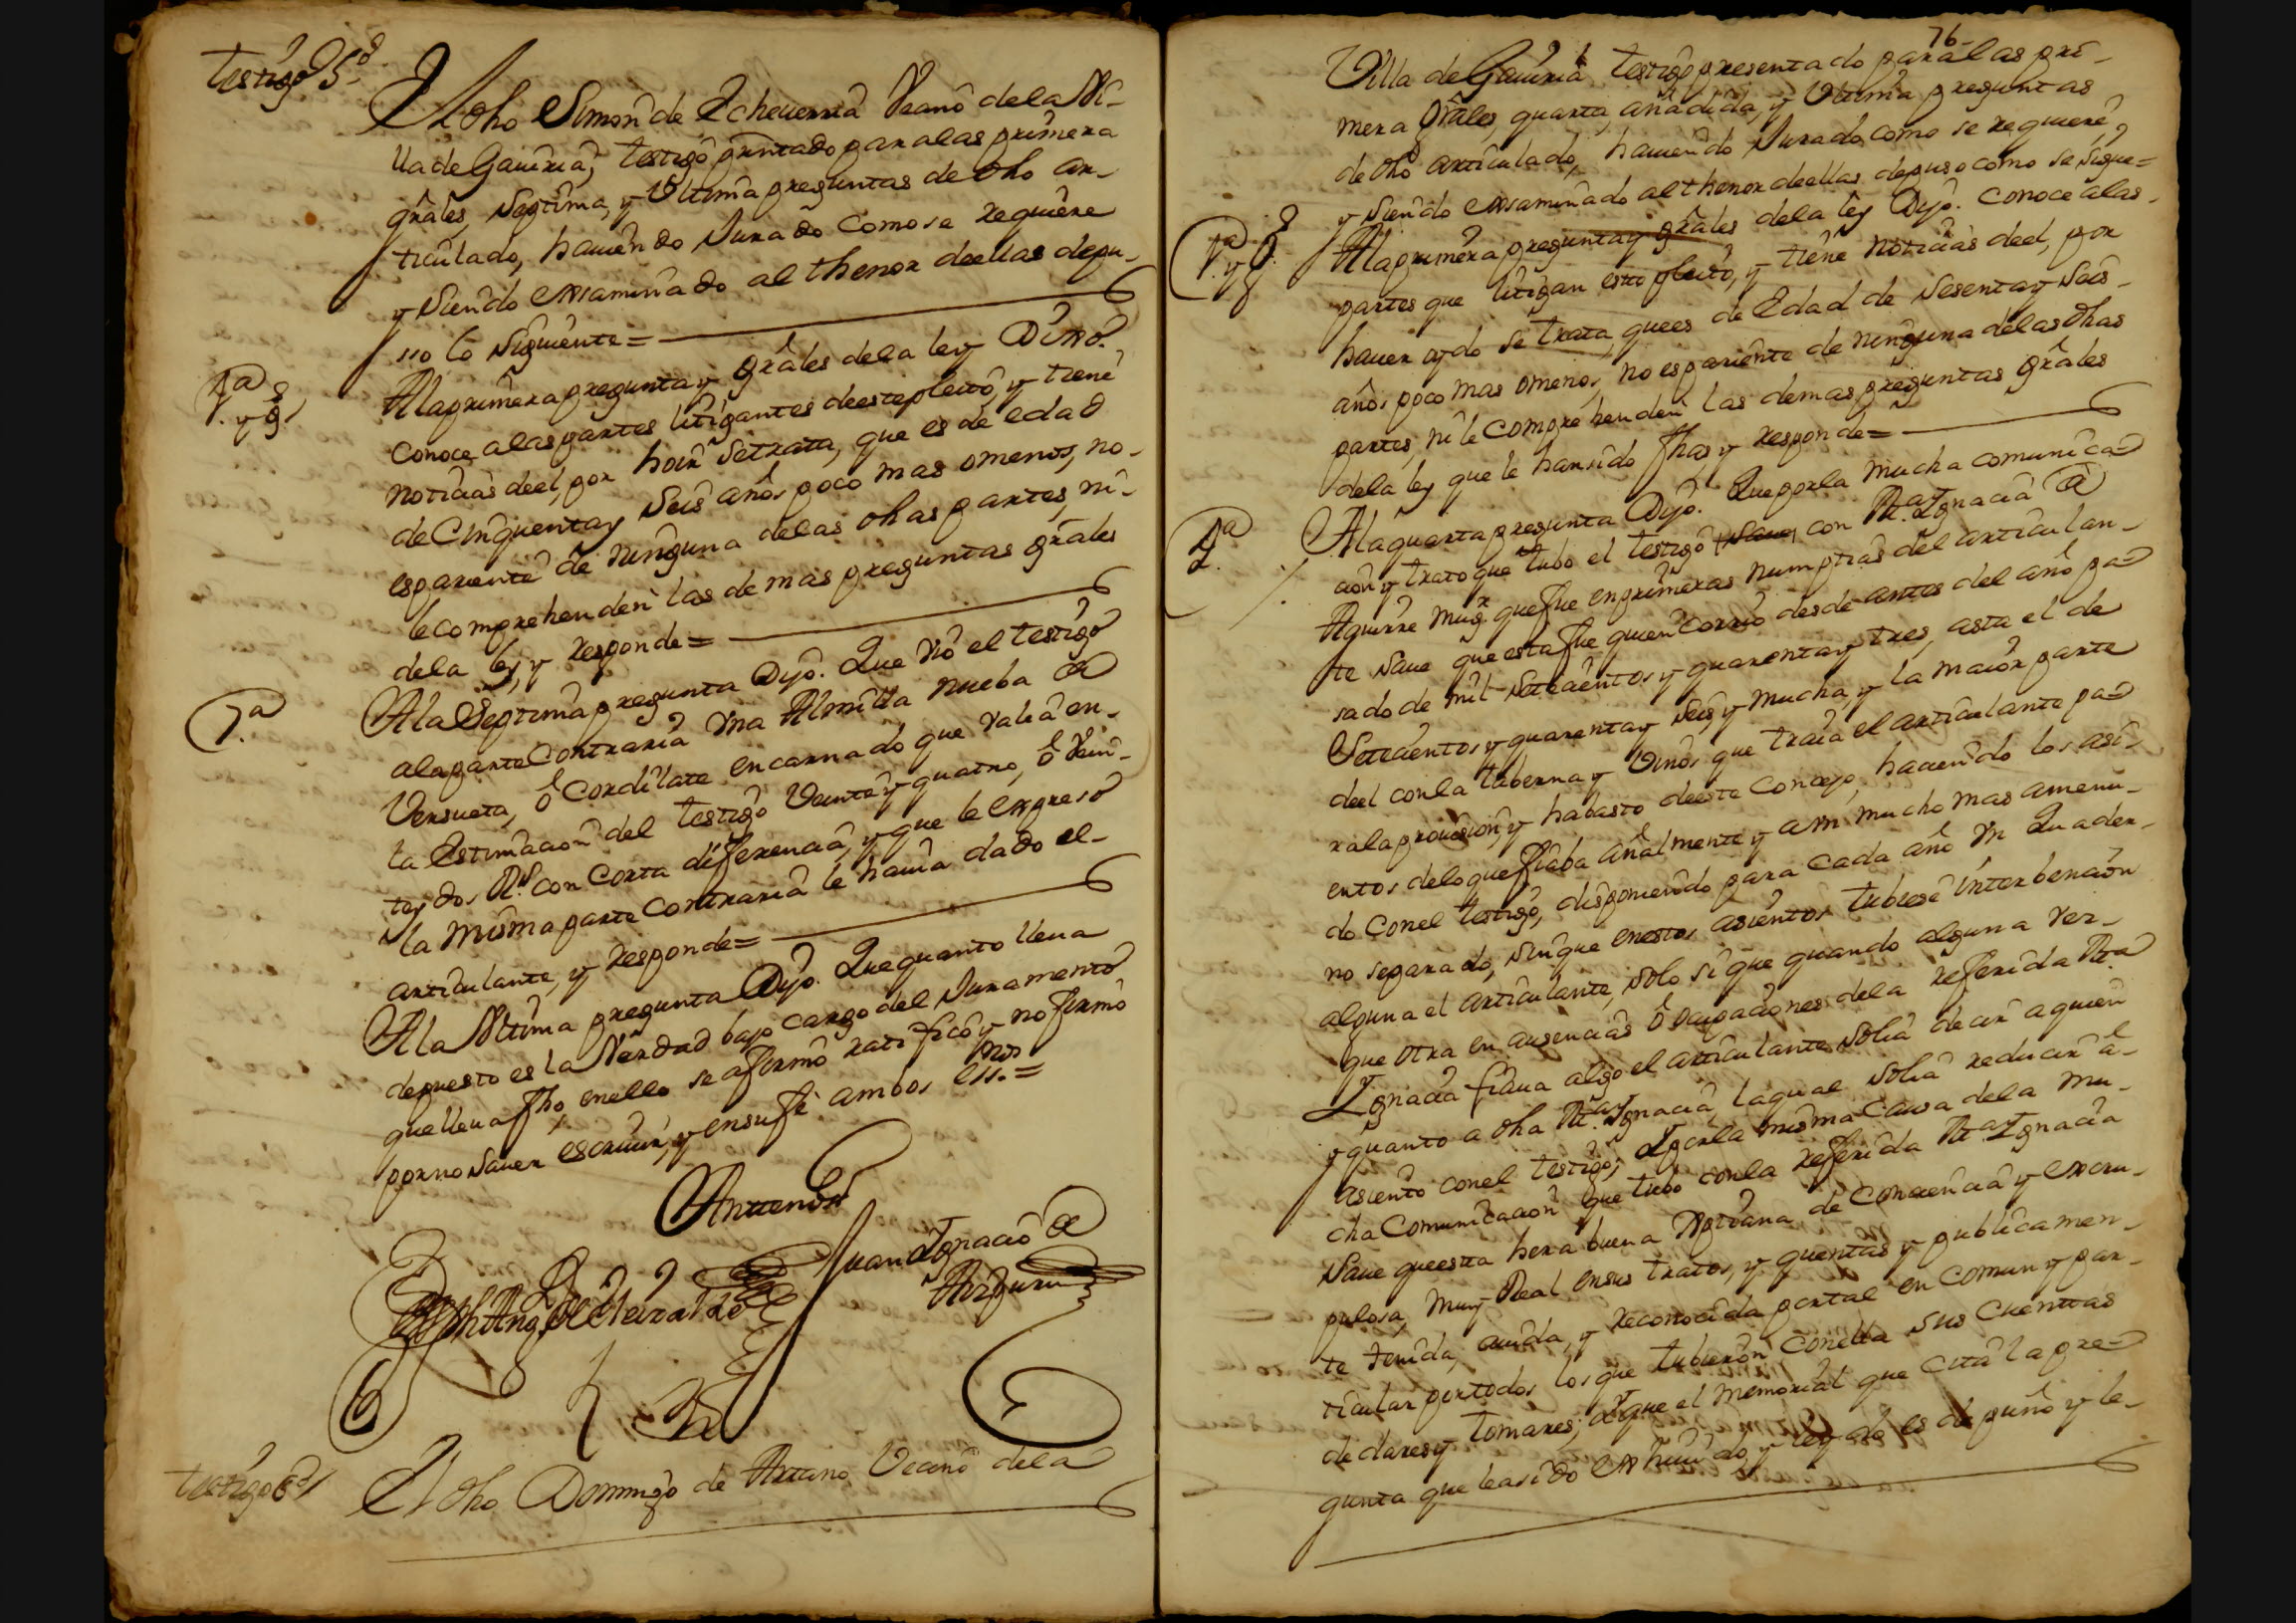 Testigo 5º
El dho Simon de Echeuerria Veano dela Vi-
lla de Gauiria, testigo pñtado para las primera
grâles, septima, y Vltima preguntas de dho ar-
ticulado, hauiendo Jurado como se requiere
y siendo exsaminado al thenor deellas depu-
sso lo siguiente=
1ª y gs
Ala primera pregunta y grâles dela ley Dixo.
Conoce alas partes litigantes deeste pleito, y tiene
noticias deel, por hoir setrata, que es de edad
de Cinquenta y seis años poco mas omenos, no-
es pariente de ninguna delas dhas partes, ni-
le comprehenden las demas preguntas grâles
dela ley, y responde=
7ª
Ala Septima pregunta Dijo. Que vio el testigo
ala parte Contraria vna Almilla nueba de
Versueta, ô Cordilate encarnado, que valia en-
la estimacion del testigo Veinte y quatro, ô Vein-
te y dos Rs. con Corta diferencia, y que le expreso
la misma parte contraria le hauia dado el-
articulante, y responde=
Ala Vltima pregunta Dijo. Que quanto lleua
depuesto es la Verdad bajo cargo del Juramento
que lleua fho, enello se afirmo ratifico y no firmo
por no sauer escriuir, y ensufe ambos essnos=
Antemi
Juan Ignacio de
Testigo 6º
El dho Domingo de Artano Veano dela
76-
Villa de Gauiria testigo presentado para las pri-
mera grâles, quarta, añadida, y Vltima preguntas
de dho articulado, hauiendo Jurado como se requiere,
y siendo exsaminado al thenor deellas depuso como se sigue=
1ª y g
Ala primera pregunta y grâles dela ley Dijo. Conoce alas-
partes que litigan este pleito, y tiene noticias deel, por
hauer oydo se trata, que es de Edad de sesenta y seis-
años poco mas omenos, no es pariente de ninguna delas dhas
partes, ni le Comprehenden las demas preguntas grâles
dela ley que le han sido fhas y responde=
4ª
Ala quarta pregunta Dijo. Que por la mucha comunica-
cion y trato que tubo el testigo con Mª Ignacia de
Aguirre mugr que fue en primeras numptias del articulan-
te saue que esta fue quien corrio desde antes del año pa-
sado de mil setecientos y quarenta y tres, asta el de
Setecientos y quarenta y seis, y mucha, y la maior parte
deel con la taberna y Vinos que traia el articulante pa-
ra la prouision, y habasto deeste Concejo, haciendo los asi-
entos delo que fiaba añalmente y aun mucho mas amenu-
do Conel testigo, disponiendo para cada año vn Quader-
no separado, sin que enestos asientos tubiese interbencion
alguna el articulante, solo si que quando alguna vez-
que otra en ausencias ô ocupaciones dela referida Mª
Ignacia fiaua algo el articulante solia decir aquien
y quanto a dha Mª Ignacia, la qual solia reducir â-
asiento conel testigo; Y por la misma causa dela mu-
cha Comunicacion que tubo con la referida Mª Ignacia
saue que esta hera buena Xptiana de conciencia y escru-
pulosa, muy Real ensus tratos, y quentas y publicamen-
te tenida, auida, y reconocida por tal en comun y par-
ticular por todos los que tubieron conella sus cuentas
de dares y tomares; Y que el memorial que cita la pre-
gunta que lea sido exhiuido, y leydo es de puño y le-